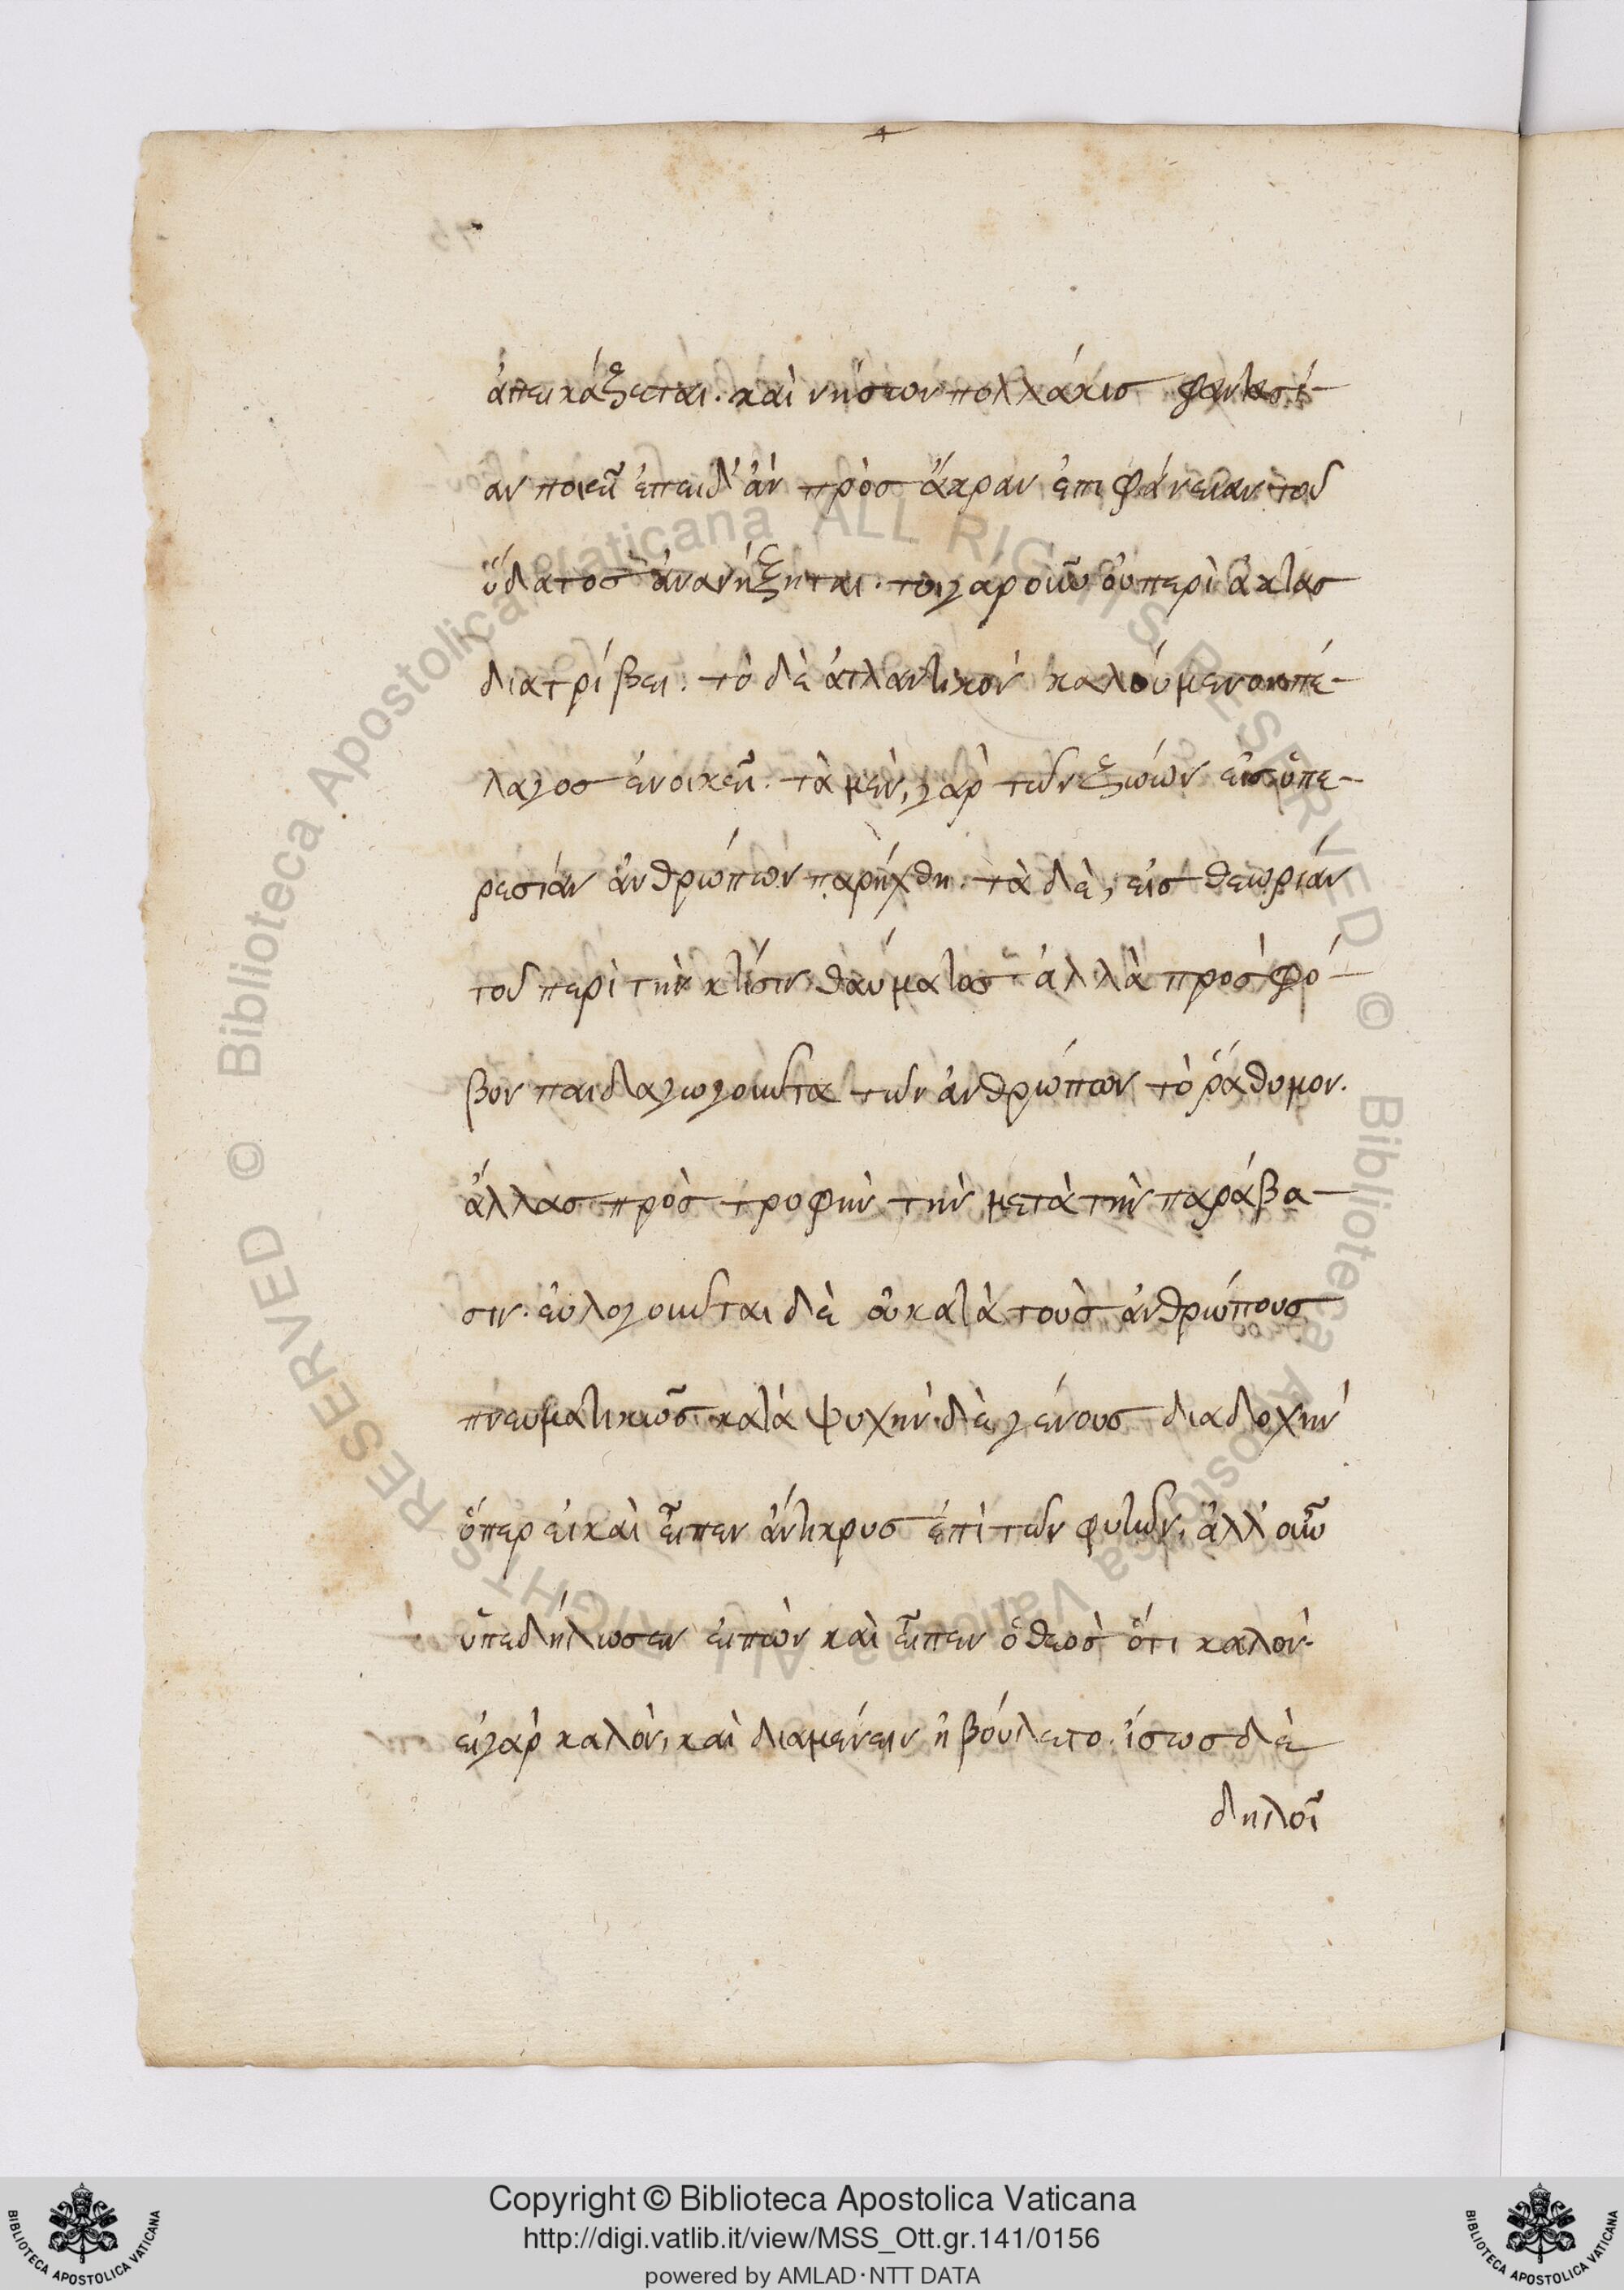 ἀπεικάζεται. καὶ νήσων πολλάκις φαντασί-
αν ποιεῖ ἐπειδ' ἀν πρὸς ἄκραν ἐπιφάνειαν τοῦ
ὕδατος ἀνανήξηται. τοιγαροῦν οὐ περὶ ἀκτὰς
διατρίβει. τὸ δὲ ἀτλαντικὸν καλούμενον πέ-
λαγος ἐνοικεῖ. τὰ μὲν, γὰρ τῶν ζώων εἰς ὑπε-
ρεσιάν ἀνθρώπων παρήχθη. τὰ δὲ, εἰς θεωριάν
τοῦ περὶ τὴν κτίσιν θαύματος ἀλλὰ πρὸς φό-
βον παιδαγωγοῦντα τῶν ἀνθρώπων τὸ ῥάθυμον.
ἄλλας πρὸς τροφὴν τὴν μετὰ τὴν παράβα-
σιν. εὐλογοῦνται δὲ οὐ κατὰ τοὺς ἀνθρώπους
πνευματικῶς κατὰ ψυχὴν δὲ γένους διαδοχὴν
ὅπερ εἰ καὶ εἶπεν ἄντικρυς ἐπὶ τῶν φυτῶν, ἀλλ' οὖν
ὑπεδήλωσεν εἰπὼν καὶ εἶπεν ὁ θεὸς ὅτι καλόν.
εἰ γὰρ καλὸν, καὶ διαμένειν ἠβούλετο. ἴσως δὲ
δηλοῖ
Copyright © Biblioteca Apostolica Vaticana
http://digi.vatlib.it/view/MSS_Ott.gr.141/0156
powered by AMLAD·NTT DATA
BIBLIOTECA APOSTOLICA VATICANA
BIBLIOTECA APOSTOLICA VATICANA
© Biblioteca Apostolica Vaticana ALL RIGHTS RESERVED © Biblioteca Apostolica Vaticana ALL RIGHTS RESERVED